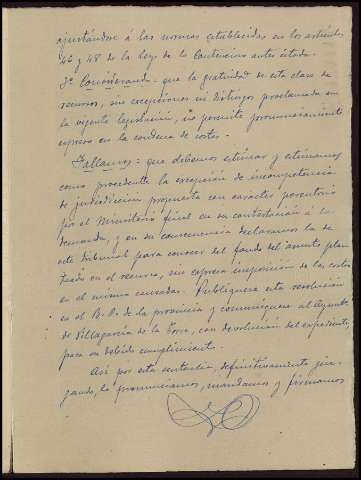 ajustándose á las normas establecidas en los artículos
46 y 48 de la Ley de lo Contencioso antes citada.
3º Considerando: que la gratuidad de esta clase de
recursos, sin excepciones ni distingos proclamada en
la vigente legislación, no permite pronunciamiento
expreso en la condena de costas.
Fallamos: que debemos estimar y estimamos
como procedente la excepción de incompetencia
de jurisdicción propuesta con caracter perentorio
por el Ministerio fiscal en su contestación á la
demanda, y en su consecuencia declaramos la de
este Tribunal para conocer del fondo del asunto plan-
teado en el recurso, sin expresa imposición de las costas
en el mismo causadas. Publiquese esta resolución
en el B. O. de la provincia y comuniquese al Ayunto
de Villagarcía de la Torre, con devolución del expediente,
para su debido cumplimiento.
Así por esta sentencia, definitivamente juz-
gando, lo pronunciamos, mandamos y firmamos